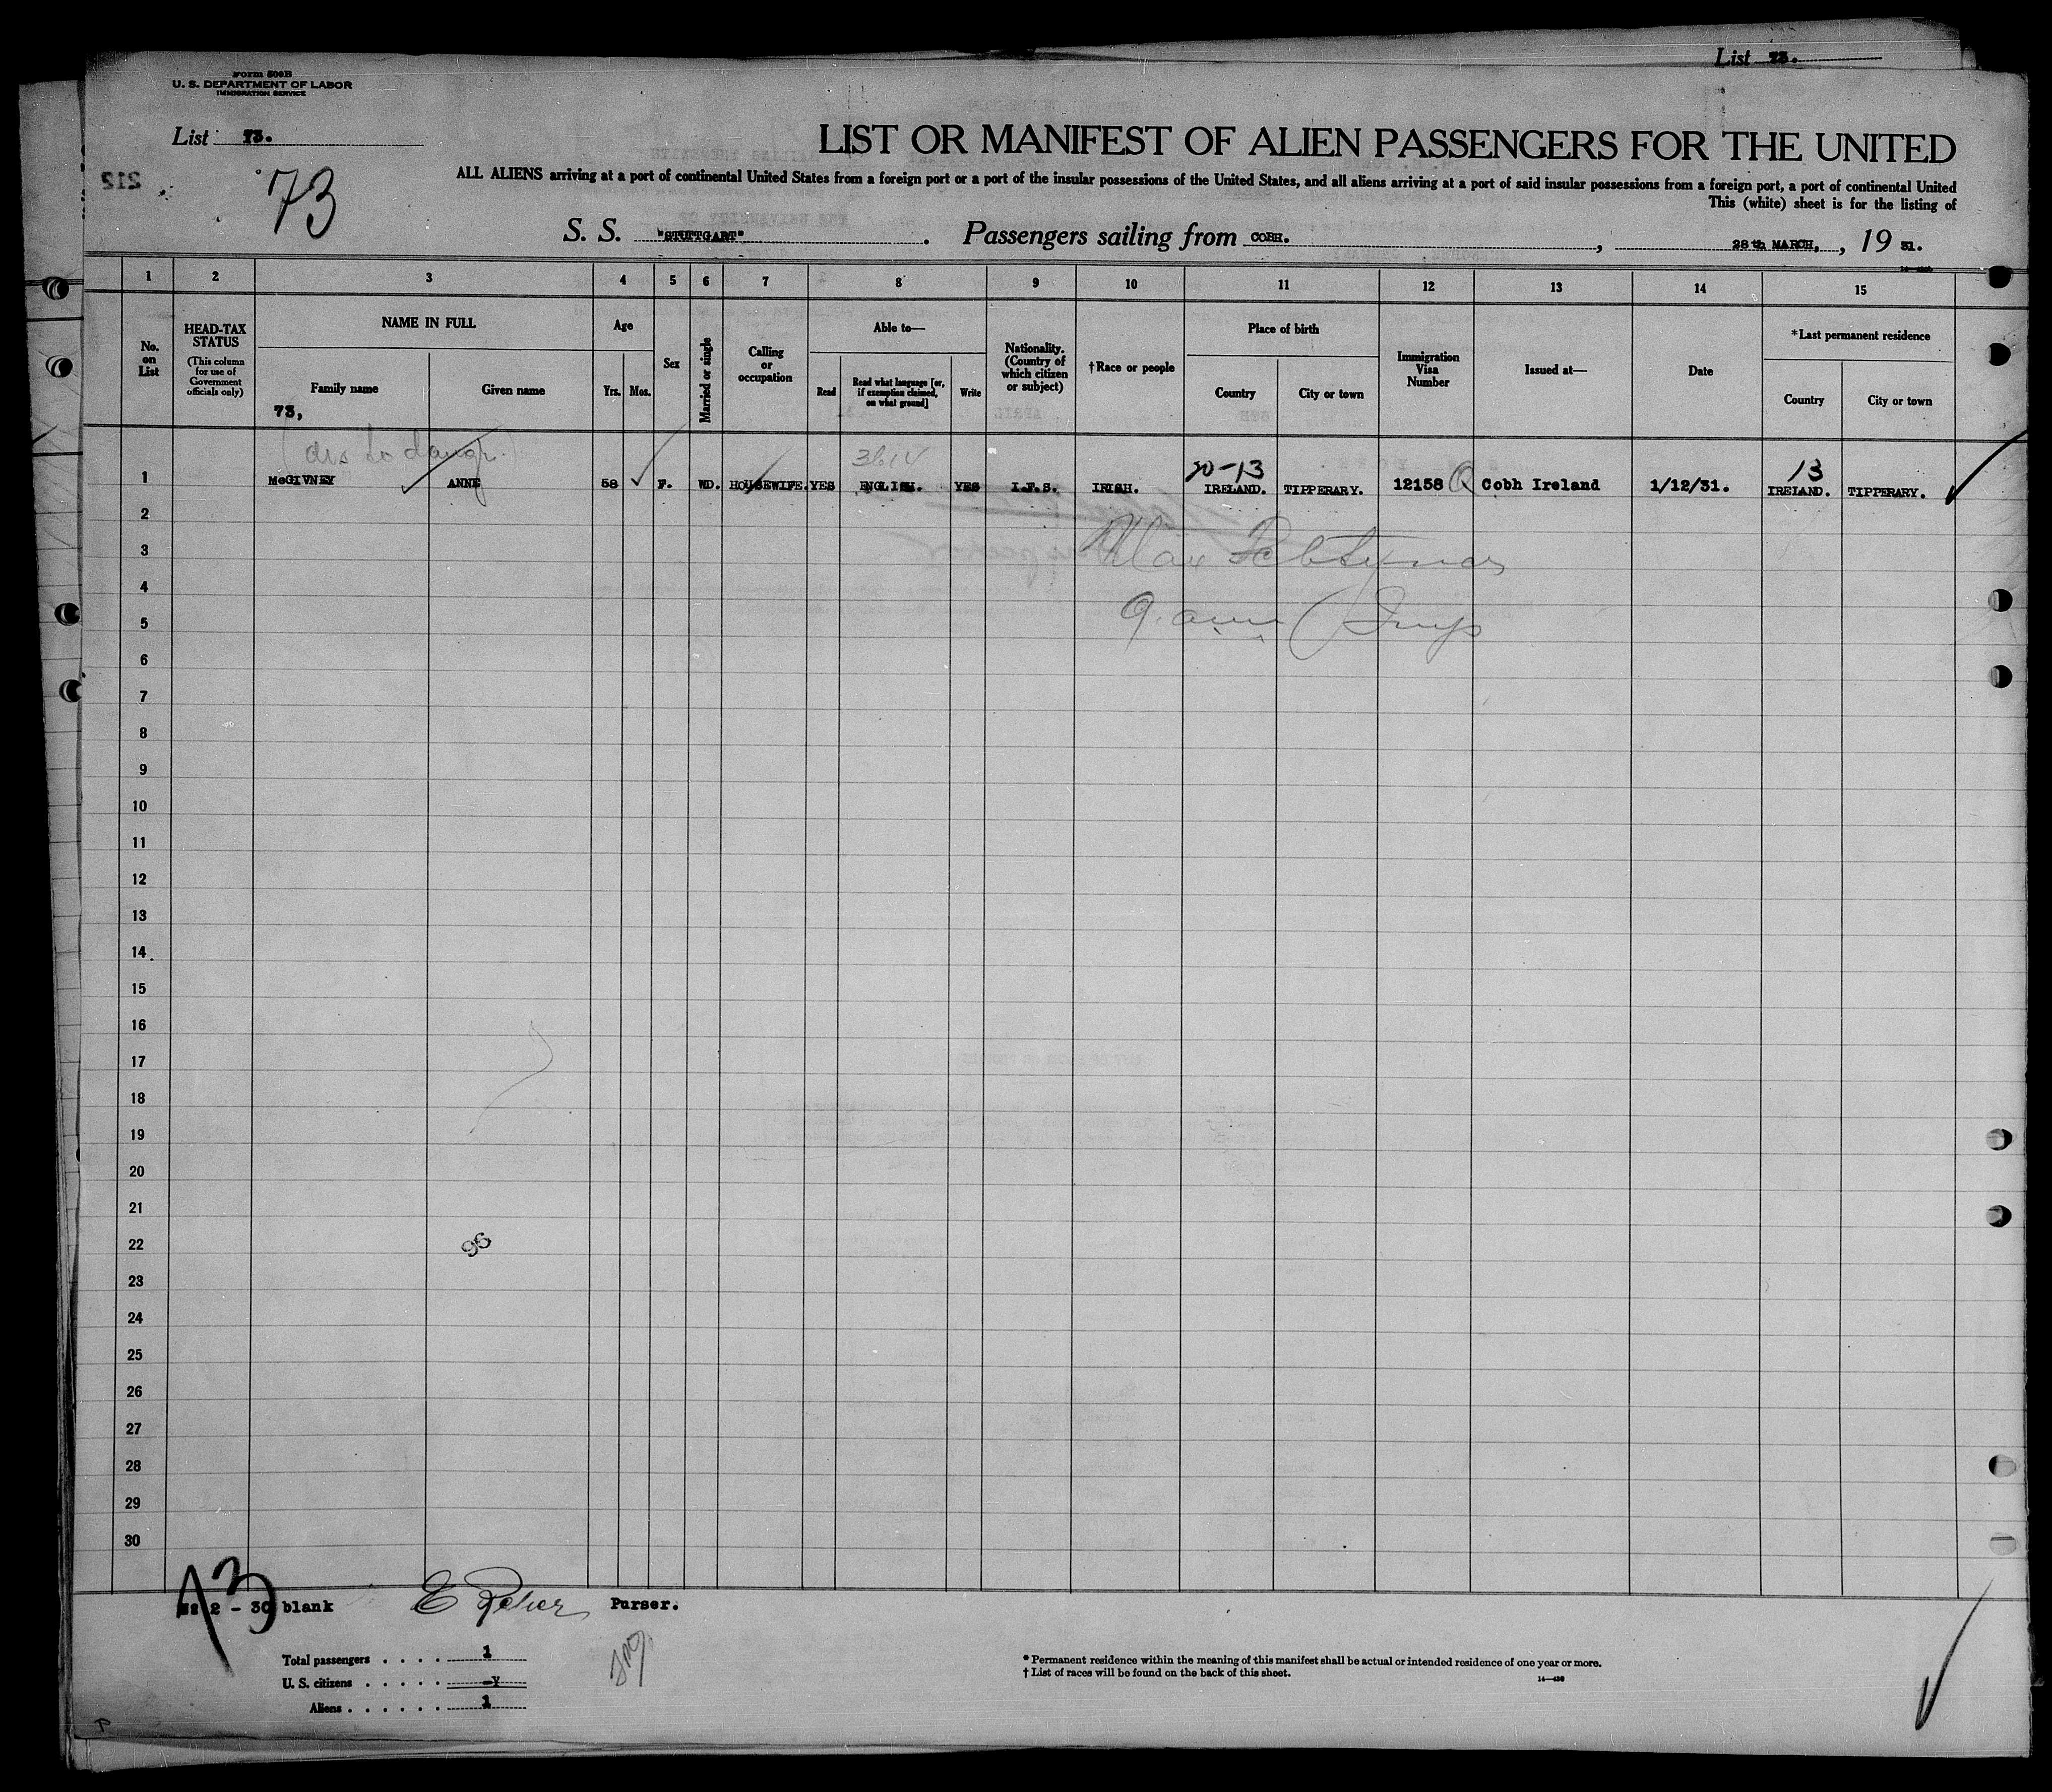 List 73.
Form 500B
U. S. DEPARTMENT OF LABOR
IMMIGRATION SERVICE
List 73.
LIST OR MANIFEST OF ALIEN PASSENGERS FOR THE UNITED
212
73
ALL ALIENS arriving at a port of continental United States from a foreign port or a port of the insular possessions of the United States, and all aliens arriving at a port of said insular possessions from a foreign port, a port of continental United
This (white) sheet is for the listing of
S. S. "STUTTGART". Passengers sailing from COBH., 28th MARCH, , 19 31.
1 2 3 4 5 6 7 8 9 10 11 12 13 14 15
No. on List
HEAD-TAX STATUS
(This column for use of Government officials only)
NAME IN FULL
Family name
Given name
Age
Yrs. Mos.
Sex
Married or single
Calling or occupation
Able to—
Read
Read what language [or, if exemption claimed, on what ground]
Write
Nationality. (Country of which citizen or subject)
†Race or people
Place of birth
Country
City or town
Immigration Visa Number
Issued at—
Date
*Last permanent residence
Country
City or town
73,
3614
20-13
13
1 McGIVNEY ANNE 58 F. WD. HOUSEWIFE. YES ENGLISH. YES I.F.S. IRISH. IRELAND. TIPPERARY. 12158 Q Cobh Ireland 1/12/31. IRELAND. TIPPERARY.
2
3
4
5
6
7
8
9
10
11
12
13
14
15
16
17
18
19
20
21
22
96
23
24
25
26
27
28
29
30
73
2 - 30 blank
Purser.
Total passengers . . . . 1
U. S. citizens . . . . .
Aliens . . . . . . 1
* Permanent residence within the meaning of this manifest shall be actual or intended residence of one year or more.
† List of races will be found on the back of this sheet.